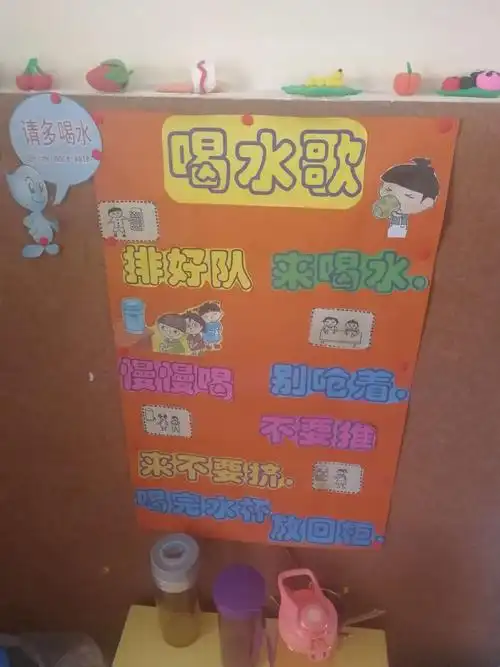 请多喝水
喝水歌
排好队 来喝水.
慢慢喝 别呛着.
不要推
来不要挤.
喝完水杯 放回柜.